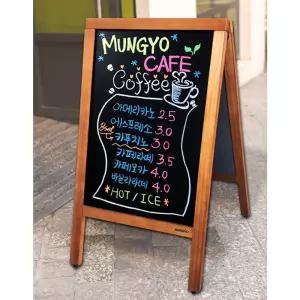 MUNGYO
CAFE
Coffee
아메리카노 2.5
에스프레소 3.0
Best 카푸치노 3.0
카페라떼 3.5
카페모카 4.0
바닐라라떼 4.0
*HOT / ICE*